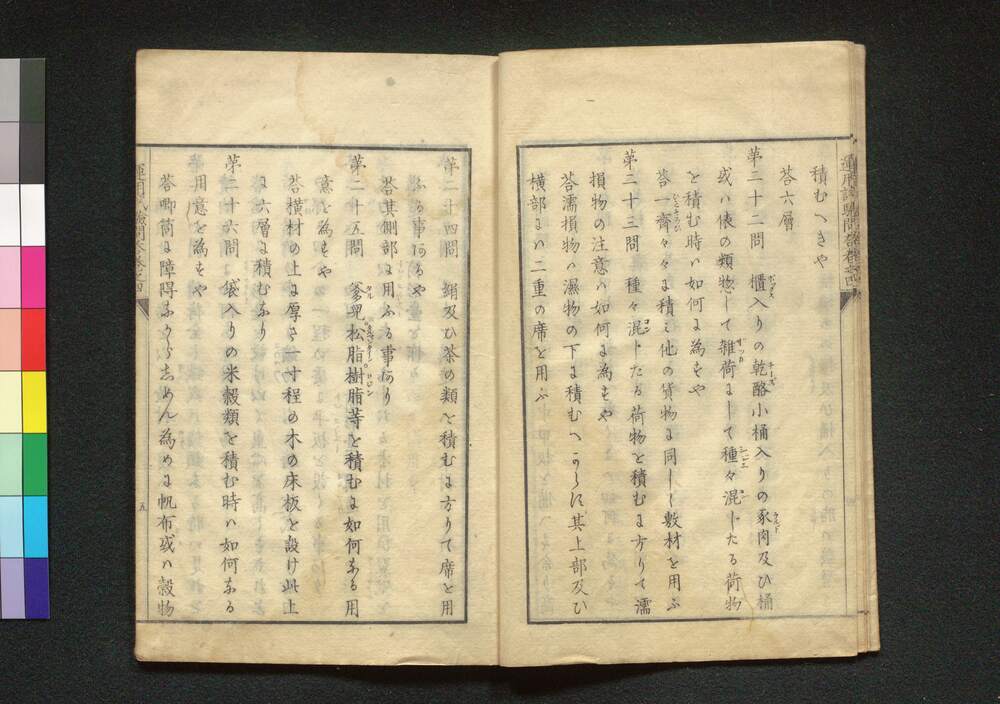 積むへきや
答六層
第二十二問 櫃入りの乾酪小桶入りの豕肉及ひ桶
或ハ俵の類物して雑荷にして種々混したる荷物
を積む時ハ如何に為すや
答一齊々々に積ミ他の貨物に同しく敷材を用ふ
第二十三問 種々混したる荷物を積むに方りて濡
損物の注意ハ如何に為すや
答濡損物ハ濕物の下に積むへからす其上部及ひ
横部にハ二重の席を用ふ
第二十四問 絹及ひ茶の類を積むに方りて席を用
ふる事あるや
答其側部に用ふる事あり
第二十五問 爹兒松脂樹脂等を積むに如何なる用
意を為すや
答横材の上に厚さ一寸程の木の床板を設け此上
に六層に積むなり
第二十六問 袋入りの米穀類を積む時ハ如何なる
用意を為すや
答喞筒に障碍なからしめん為めに帆布或ハ穀物
五